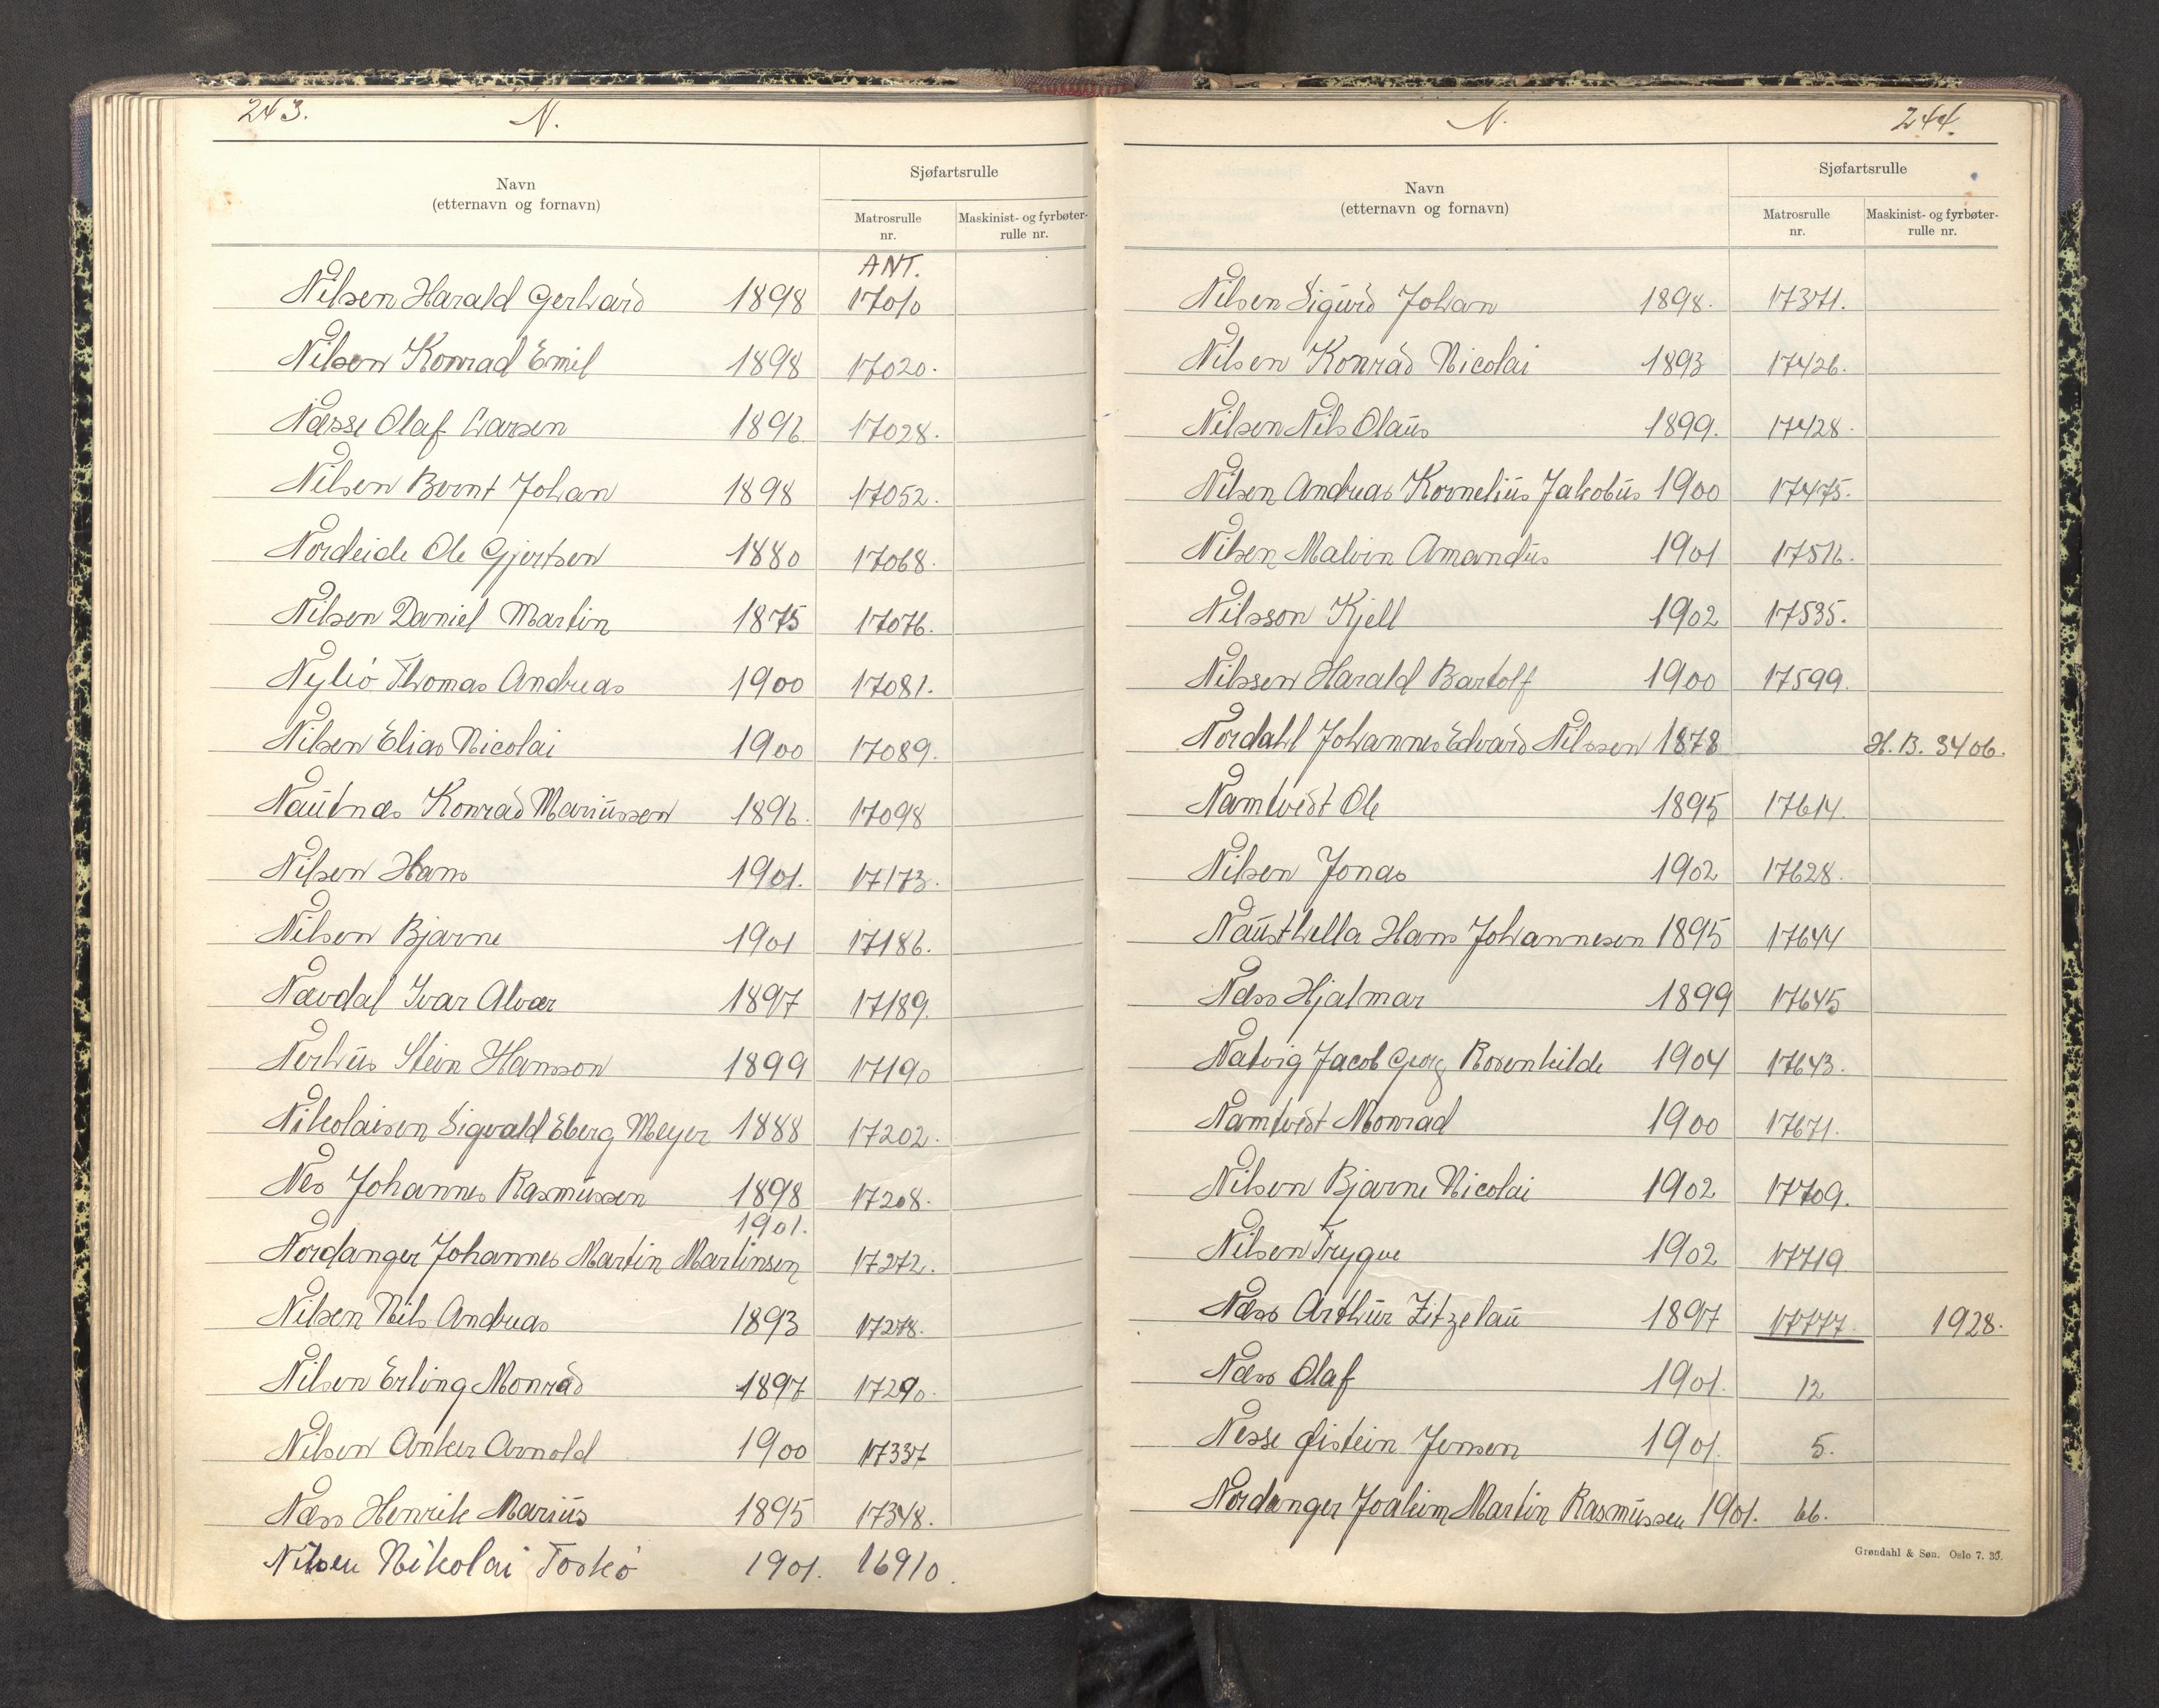 243.
N.
Navn
(etternavn og fornavn)
Sjøfartsrulle
Matrosrulle
nr.
Maskinist- og fyrbøter-
rulle nr.
ANT.
Nilsen Harald Gerhard 1898 17010
Nilsen Konrad Emil 1898 17020.
Næsse Olaf Larsen 1896 17028.
Nilsen Bernt Johan 1898 17052.
Nordeide Ole Gjertsen 1880 17068.
Nilsen Daniel Martin 1875 17076.
Nykiö Thomas Andreas 1900 17081.
Nilsen Elias Nicolai 1900 17089.
Nautnæs Konrad Mariussen 1896. 17098
Nilsen Hans 1901. 17173.
Nilsen Bjarne 1901 17186.
Nævdal Ivar Alvær 1897 17189.
Nerhus Stein Hansson 1899 17190
Nikolaisen Sigvald Eberg Meyer 1888 17202.
Nes Johannes Rasmussen 1898 17208.
1901.
Nordanger Johannes Martin Martinsen 17272.
Nilsen Nils Andreas 1893 17278.
Nilsen Erling Monrad 1897 17290.
Nilsen Anker Arnold 1900 17337
Næss Henrik Marius 1895 17348.
Nilsen Nikolai Toskö 1901. 16910.
N.
244.
Navn
(etternavn og fornavn)
Sjøfartsrulle
Matrosrulle
nr.
Maskinist- og fyrbøter-
rulle nr.
Nilsen Sigurd Johan 1898. 17371.
Nilsen Konrad Nicolai 1893 17426.
Nilsen Nils Olaus 1899. 17428.
Nilsen Andreas Kornelius Jakobus 1900 17475.
Nilsen Malvin Amandus 1901 17516.
Nilsson Kjell 1902 17535.
Nilssen Harald Bartolf 1900 17599.
Nordahl Johannes Edvard Nilssen 1878 H.B. 3406.
Namtvedt Ole 1895 17614.
Nilsen Jonas 1902 17628.
Nausthella Hans Johannesen 1895 17644
Næss Hjalmar 1899 17645
Natvig Jacob Georg Rosenkilde 1904 17643.
Namtvedt Monrad 1900 17671.
Nilsen Bjarne Nicolai 1902 17709.
Nilsen Trygve 1902 17719
Næss Arthur Zitzelau 1897 17777. 1928.
Næss Olaf 1901. 12
Nesse Øistein Jensen 1901. 5.
Nordanger Joakim Martin Rasmussen 1901. 66.
Grøndahl & Søn. Oslo 7. 33.